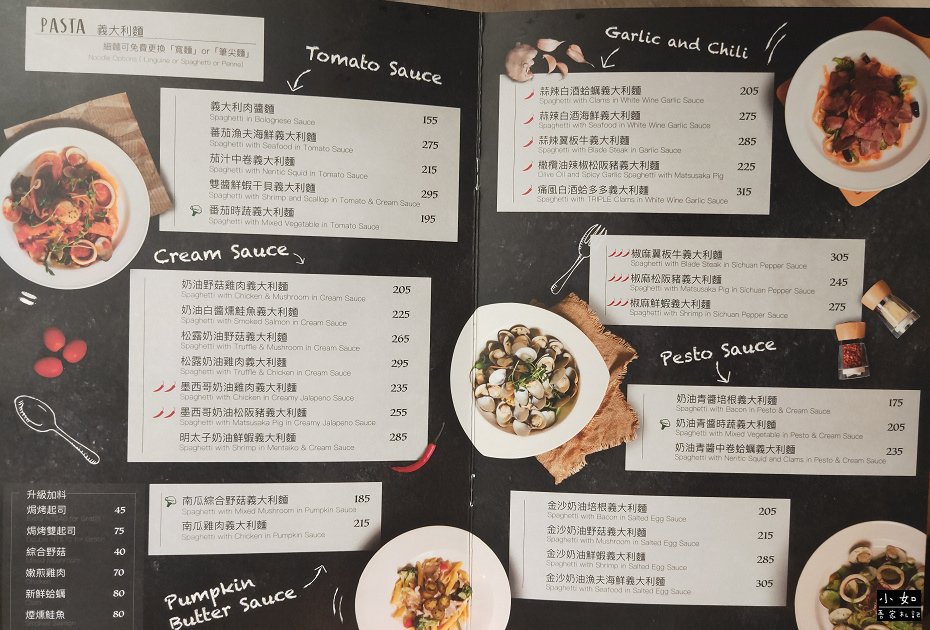 PASTA 義大利麵
細麵可免費更換「寬麵」or「筆尖麵」
Noodle Options ( Linguine or Spaghetti or Penne)
Tomato Sauce
義大利肉醬麵 155
Spaghetti in Bolognese Sauce
蕃茄漁夫海鮮義大利麵 275
Spaghetti with Seafood in Tomato Sauce
茄汁中卷義大利麵 215
Spaghetti with Neritic Squid in Tomato Sauce
雙醬鮮蝦干貝義大利麵 295
Spaghetti with Shrimp and Scallop in Tomato & Cream Sauce
番茄時蔬義大利麵 195
Spaghetti with Mixed Vegetable in Tomato Sauce
Cream Sauce
奶油野菇雞肉義大利麵 205
Spaghetti with Chicken & Mushroom in Cream Sauce
奶油白醬燻鮭魚義大利麵 225
Spaghetti with Smoked Salmon in Cream Sauce
松露奶油野菇義大利麵 265
Spaghetti with Truffle & Mushroom in Cream Sauce
松露奶油雞肉義大利麵 295
Spaghetti with Truffle & Chicken in Cream Sauce
墨西哥奶油雞肉義大利麵 235
Spaghetti with Chicken in Creamy Jalapeno Sauce
墨西哥奶油松阪豬義大利麵 255
Spaghetti with Matsusaka Pig in Creamy Jalapeno Sauce
明太子奶油鮮蝦義大利麵 285
Spaghetti with Shrimp in Mentaiko & Cream Sauce
升級加料
焗烤起司 45
焗烤雙起司 75
綜合野菇 40
嫩煎雞肉 70
新鮮蛤蠣 80
煙燻鮭魚 80
南瓜綜合野菇義大利麵 185
Spaghetti with Mixed Mushroom in Pumpkin Sauce
南瓜雞肉義大利麵 215
Spaghetti with Chicken in Pumpkin Sauce
Pumpkin
Butter Sauce
Garlic and Chili
蒜辣白酒蛤蠣義大利麵 205
Spaghetti with Clams in White Wine Garlic Sauce
蒜辣白酒海鮮義大利麵 275
Spaghetti with Seafood in White Wine Garlic Sauce
蒜辣翼板牛義大利麵 285
Spaghetti with Blade Steak in Garlic Sauce
橄欖油辣椒松阪豬義大利麵 225
Olive Oil and Spicy Garlic Spaghetti with Matsusaka Pig
痛風白酒蛤多多義大利麵 315
Spaghetti with TRIPLE Clams in White Wine Garlic Sauce
椒麻翼板牛義大利麵 305
Spaghetti with Blade Steak in Sichuan Pepper Sauce
椒麻松阪豬義大利麵 245
Spaghetti with Matsusaka Pig in Sichuan Pepper Sauce
椒麻鮮蝦義大利麵 275
Spaghetti with Shrimp in Sichuan Pepper Sauce
Pesto Sauce
奶油青醬培根義大利麵 175
Spaghetti with Bacon in Pesto & Cream Sauce
奶油青醬時蔬義大利麵 205
Spaghetti with Mixed Vegetable in Pesto & Cream Sauce
奶油青醬中卷蛤蠣義大利麵 235
Spaghetti with Neritic Squid and Clams in Pesto & Cream Sauce
金沙奶油培根義大利麵 205
Spaghetti with Bacon in Salted Egg Sauce
金沙奶油野菇義大利麵 215
Spaghetti with Mushroom in Salted Egg Sauce
金沙奶油鮮蝦義大利麵 285
Spaghetti with Shrimp in Salted Egg Sauce
金沙奶油漁夫海鮮義大利麵 305
Spaghetti with Seafood in Salted Egg Sauce
小如
吾家札記